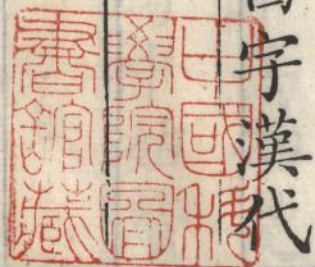 字漢代
中國科
學院圖
書館藏